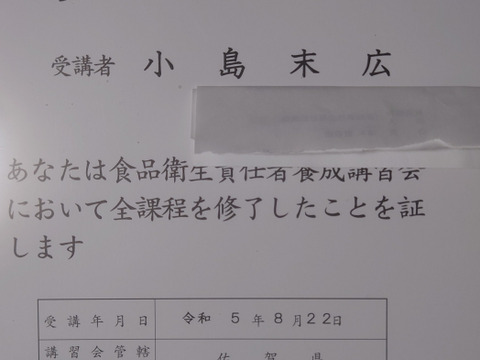 受講者 小島末広
あなたは食品衛生責任者養成講習会
において全課程を修了したことを証
します
受講年月日 令和 5年 8月22日
講習会管轄 佐賀県